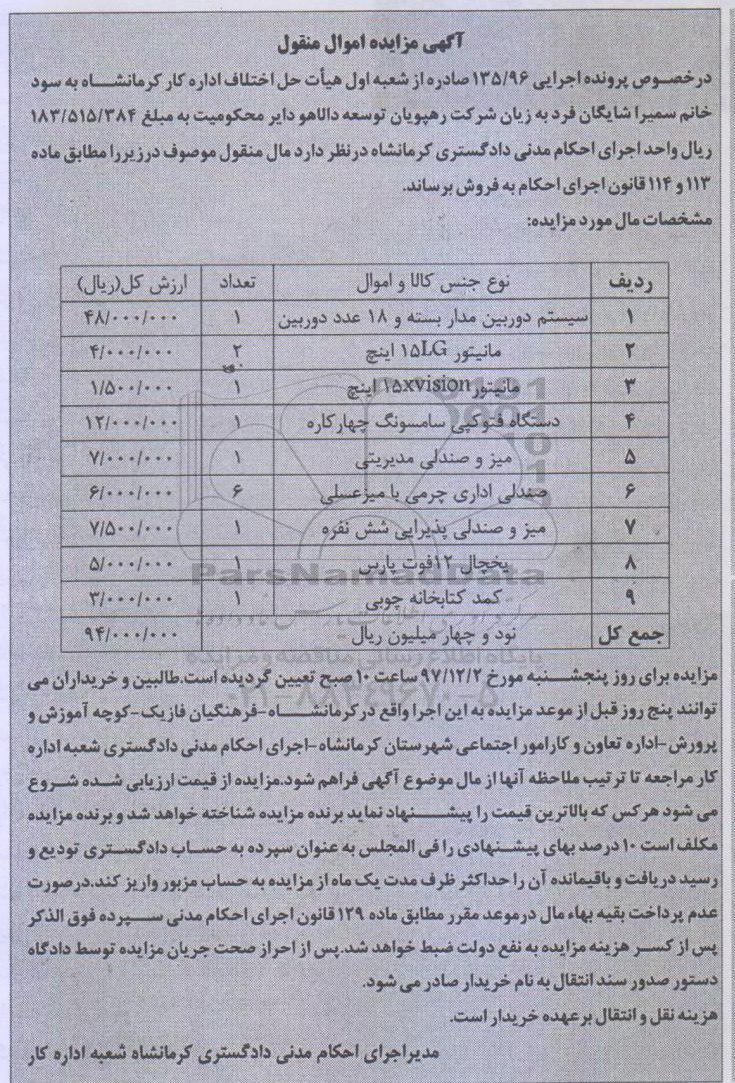 آگهی مزایده اموال منقول
درخصوص پرونده اجرایی ۱۳۵/۹۶ صادره از شعبه اول هیأت حل اختلاف اداره کار کرمانشاه به سود
خانم سمیرا شایگان فرد به زیان شرکت رهپویان توسعه دالاهو دایر محکومیت به مبلغ ۱۸۳/۵۱۵/۳۸۴
ریال واحد اجرای احکام مدنی دادگستری کرمانشاه درنظر دارد مال منقول موصوف درزیررا مطابق ماده
۱۱۳ و ۱۱۴ قانون اجرای احکام به فروش برساند.
مشخصات مال مورد مزایده:
ردیف نوع جنس کالا و اموال تعداد ارزش کل(ریال)
۱ سیستم دوربین مدار بسته و ۱۸ عدد دوربین ۱ ۴۸/۰۰۰/۰۰۰
۲ مانیتور ۱۵LG اینچ ۲ ۴/۰۰۰/۰۰۰
۳ مانیتور ۱۵xvision اینچ ۱ ۱/۵۰۰/۰۰۰
۴ دستگاه فتوکپی سامسونگ چهارکاره ۱ ۱۲/۰۰۰/۰۰۰
۵ میز و صندلی مدیریتی ۱ ۷/۰۰۰/۰۰۰
۶ صندلی اداری چرمی با میزعسلی ۶ ۶/۰۰۰/۰۰۰
۷ میز و صندلی پذیرایی شش نفره ۱ ۷/۵۰۰/۰۰۰
۸ یخچال ۱۲فوت پارس ۱ ۵/۰۰۰/۰۰۰
۹ کمد کتابخانه چوبی ۱ ۳/۰۰۰/۰۰۰
جمع کل نود و چهار میلیون ریال ۹۴/۰۰۰/۰۰۰
ParsNamadData
پایگاه اطلاع رسانی مناقصه و مزایده
۰۲۱-۸۸۳۴۹۶۷۰-۵
مزایده برای روز پنجشنبه مورخ ۹۷/۱۲/۲ ساعت ۱۰ صبح تعیین گردیده است.طالبین و خریداران می
توانند پنج روز قبل از موعد مزایده به این اجرا واقع در کرمانشاه-فرهنگیان فازیک-کوچه آموزش و
پرورش-اداره تعاون و کارامور اجتماعی شهرستان کرمانشاه-اجرای احکام مدنی دادگستری شعبه اداره
کار مراجعه تا ترتیب ملاحظه آنها از مال موضوع آگهی فراهم شود.مزایده از قیمت ارزیابی شده شروع
می شود هرکس که بالاترین قیمت را پیشنهاد نماید برنده مزایده شناخته خواهد شد و برنده مزایده
مکلف است ۱۰ درصد بهای پیشنهادی را فی المجلس به عنوان سپرده به حساب دادگستری تودیع و
رسید دریافت و باقیمانده آن را حداکثر ظرف مدت یک ماه از مزایده به حساب مزبور واریز کند.درصورت
عدم پرداخت بقیه بهاء مال درموعد مقرر مطابق ماده ۱۲۹ قانون اجرای احکام مدنی سپرده فوق الذکر
پس از کسر هزینه مزایده به نفع دولت ضبط خواهد شد.پس از احراز صحت جریان مزایده توسط دادگاه
دستور صدور سند انتقال به نام خریدار صادر می شود.
هزینه نقل و انتقال برعهده خریدار است.
مدیراجرای احکام مدنی دادگستری کرمانشاه شعبه اداره کار